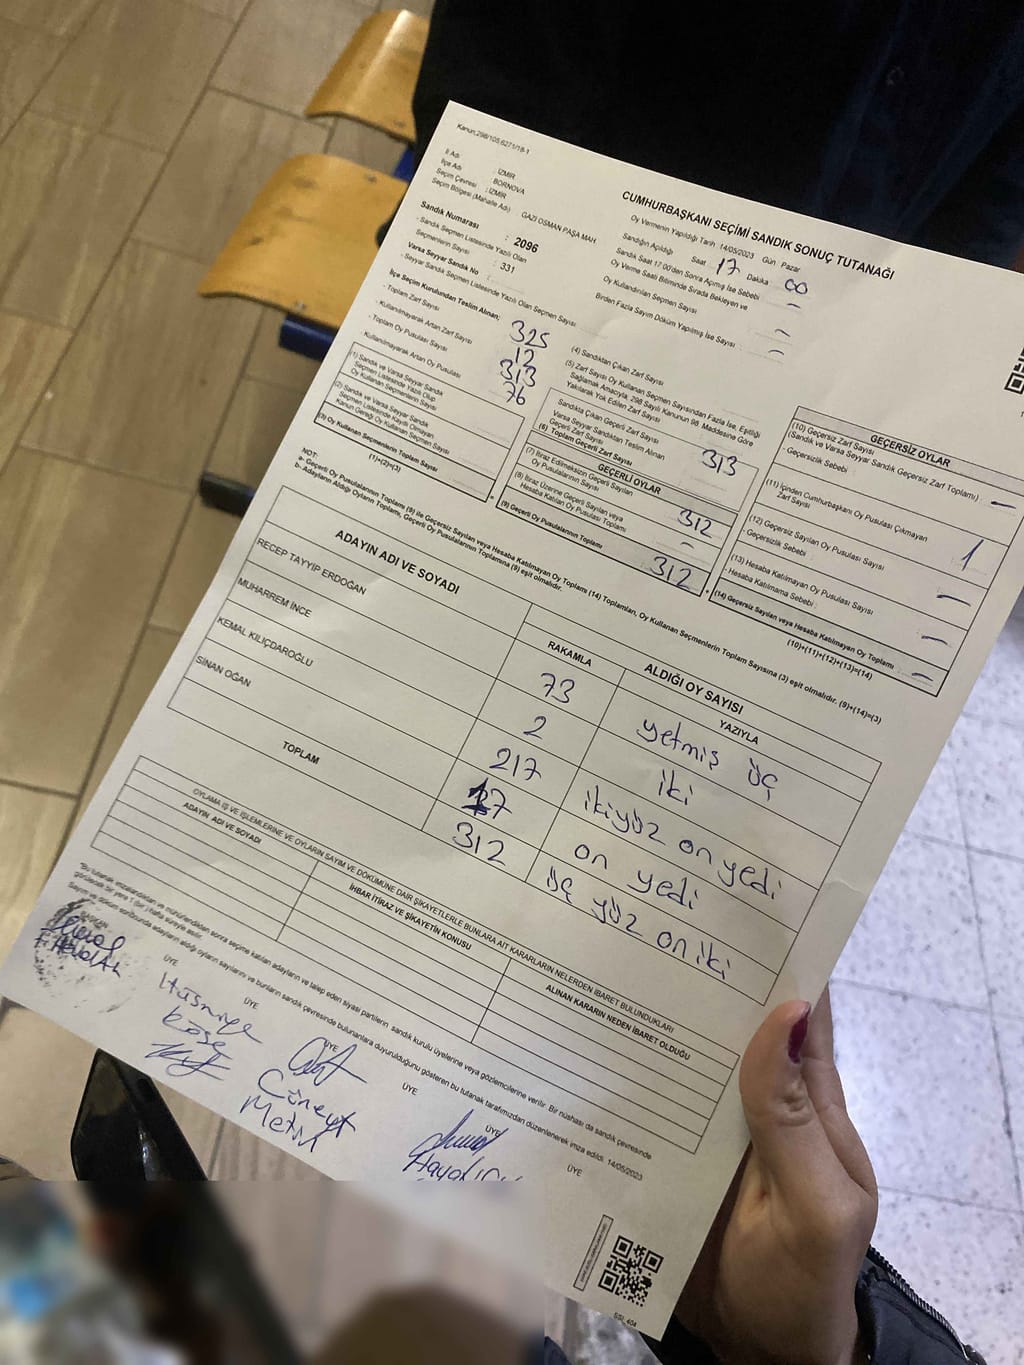 Kanun:298/105;6271/18-1
CUMHURBAŞKANI SEÇİMİ SANDIK SONUÇ TUTANAĞI
İl Adı : İZMİR
İlçe Adı : BORNOVA
Seçim Çevresi : İZMİR
Seçim Bölgesi (Mahalle Adı) GAZİ OSMAN PAŞA MAH
Sandık Numarası : 2096
- Sandık Seçmen Listesinde Yazılı Olan
Seçmenlerin Sayısı : 331
Varsa Seyyar Sandık No :
- Seyyar Sandık Seçmen Listesinde Yazılı Olan Seçmen Sayısı
Oy Vermenin Yapıldığı Tarih :14/05/2023 Gün Pazar
Sandığın Açıldığı Saat 17 Dakika 00
Sandık Saat 17:00'den Sonra Açılmış İse Sebebi -
Oy Verme Saati Bitiminde Sırada Bekleyen ve
Oy Kullandırılan Seçmen Sayısı -
Birden Fazla Sayım Döküm Yapılmış İse Sayısı : -
İlçe Seçim Kurulundan Teslim Alınan;
- Toplam Zarf Sayısı 325
- Kullanılmayarak Artan Zarf Sayısı 12
- Toplam Oy Pusulası Sayısı 313
- Kullanılmayarak Artan Oy Pusulası 76
(1) Sandık ve Varsa Seyyar Sandık
Seçmen Listesinde Yazılı Olup
Oy Kullanan Seçmenlerin Sayısı
(2) Sandık ve Varsa Seyyar Sandık
Seçmen Listesinde Kaydı Olmayan
Kanun Gereği Oy Kullanan Seçmen Sayısı
(3) Oy Kullanan Seçmenlerin Toplam Sayısı
(1)+(2)=(3)
(4) Sandıktan Çıkan Zarf Sayısı
(5) Zarf Sayısı Oy Kullanan Seçmen Sayısından Fazla İse, Eşitliği
Sağlamak Amacıyla, 298 Sayılı Kanunun 98. Maddesine Göre
Yakılarak Yok Edilen Zarf Sayısı
Sandıkta Çıkan Geçerli Zarf Sayısı
Varsa Seyyar Sandıktan Teslim Alınan
Geçerli Zarf Sayısı
(6) Toplam Geçerli Zarf Sayısı 313
GEÇERLİ OYLAR
(7) İtiraz Edilmeksizin Geçerli Sayılan
Oy Pusulalarının Sayısı 312
(8) İtiraz Üzerine Geçerli Sayılan veya
Hesaba Katılan Oy Pusulası Toplamı -
(9) Geçerli Oy Pusulalarının Toplamı 312
GEÇERSİZ OYLAR
(10) Geçersiz Zarf Sayısı
(Sandık ve Varsa Seyyar Sandık Geçersiz Zarf Toplamı) -
- Geçersizlik Sebebi
(11) İçinden Cumhurbaşkanı Oy Pusulası Çıkmayan
Zarf Sayısı 1
(12) Geçersiz Sayılan Oy Pusulası Sayısı -
- Geçersizlik Sebebi
(13) Hesaba Katılmayan Oy Pusulası Sayısı -
- Hesaba Katılmama Sebebi :
(14) Geçersiz Sayılan veya Hesaba Katılmayan Oy Toplamı : -
(10)+(11)+(12)+(13)=(14)
NOT:
a- Geçerli Oy Pusulalarının Toplamı (9) ile Geçersiz Sayılan veya Hesaba Katılmayan Oy Toplamı (14) Toplamları, Oy Kullanan Seçmenlerin Toplam Sayısına (3) eşit olmalıdır. (9)+(14)=(3)
b- Adayların Aldığı Oyların Toplamı, Geçerli Oy Pusulalarının Toplamına (9) eşit olmalıdır.
ADAYIN ADI VE SOYADI
ALDIĞI OY SAYISI
RAKAMLA YAZIYLA
RECEP TAYYİP ERDOĞAN 73 yetmiş üç
MUHARREM İNCE 2 iki
KEMAL KILIÇDAROĞLU 217 ikiyüz on yedi
SİNAN OĞAN 17 on yedi
TOPLAM 312 üç yüz on iki
OYLAMA İŞ VE İŞLEMLERİNE VE OYLARIN SAYIM VE DÖKÜMÜNE DAİR ŞİKAYETLERLE BUNLARA AİT KARARLARIN NELERDEN İBARET BULUNDUKLARI
ADAYIN ADI VE SOYADI
İHBAR İTİRAZ VE ŞİKAYETİN KONUSU
ALINAN KARARIN NEDEN İBARET OLDUĞU
*Bu tutanak imzalandıktan ve mühürlendikten sonra seçime katılan adayların ve talep eden siyasi partilerin sandık kurulu üyelerine veya gözlemcilerine verilir. Bir nüshası da sandık çevresinde
görülecek bir yere 1 (bir) hafta süreyle asılır.
Sayım ve döküm sonrasında adayların aldığı oyların sayılarını ve bunların sandık çevresinde bulunanlara duyurulduğunu gösteren bu tutanak tarafımızdan düzenlenerek imza edildi. 14/05/2023
BAŞKAN
ÜYE
Hüsniye
Köse
ÜYE
ÜYE
Cüneyt
Metin
ÜYE
ÜYE
ÜYE